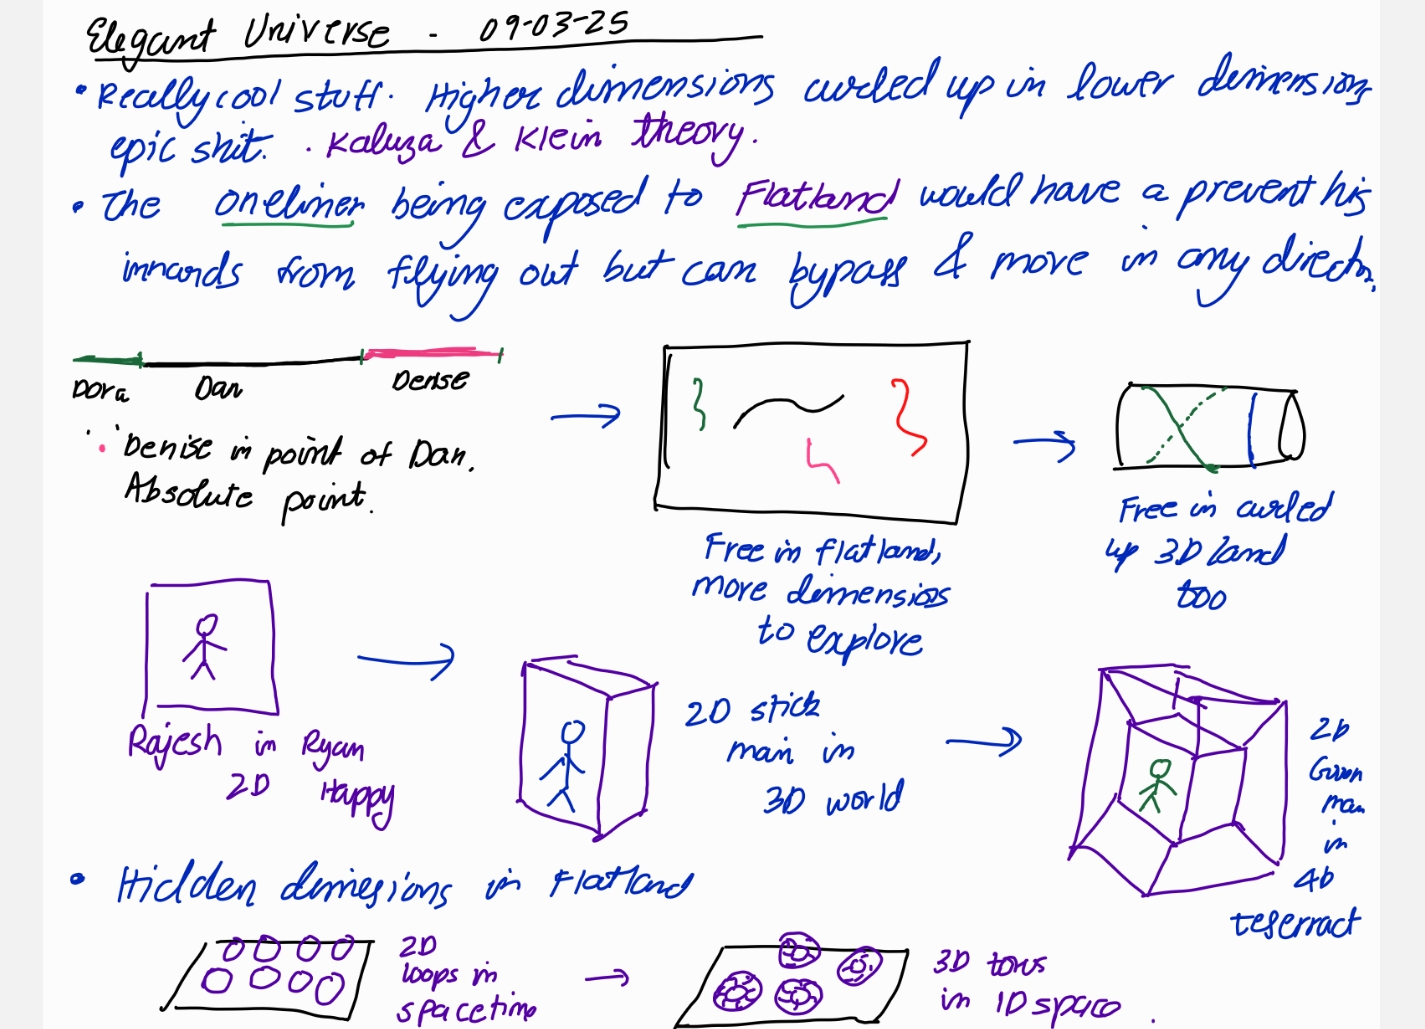 Elegant Universe - 09-03-25
• Really cool stuff. Higher dimensions curled up in lower dimensions
epic shit. . Kaluza & Klein theory.
• The oneliner being exposed to Flatland would have a prevent his
innards from flying out but can bypass & move in any directn.
Dora Dan Denise
• Denise in point of Dan.
Absolute point.
Free in flatland,
more dimensions
to explore
Free in curled
up 3D land
too
Rajesh in Ryan
2D Happy
2D stick
main in
3D world
2D
man
in
4D
teserract
• Hidden dimesions in Flatland
2D
loops in
spacetime
3D torus
in 1D space.